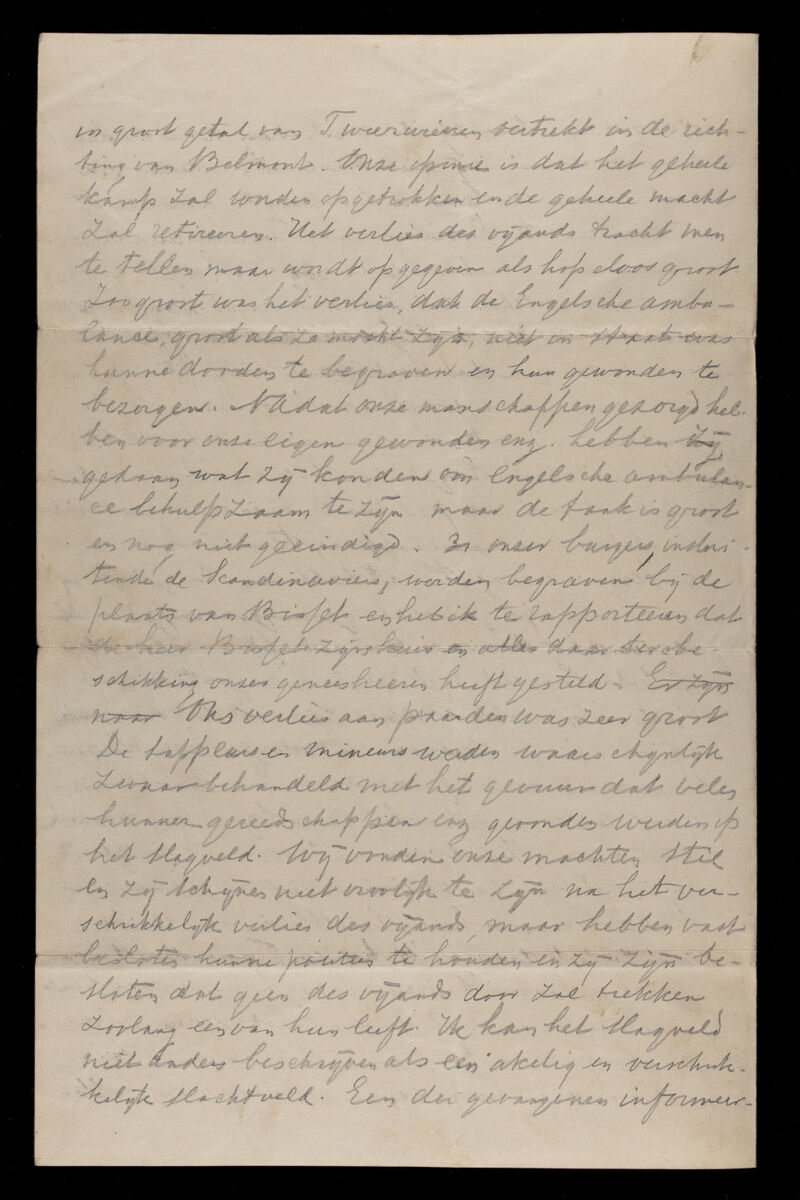 in groot getal van Tweerivieren vertrekt in de rich-
ting van Belmont. Onze opinie is dat het geheele
kamp zal worden opgetrokken en de geheele macht
zal retireeren. Het verlies des vijands tracht men
te tellen maar wordt opgegeven als hopeloos groot
Zoo groot was het verlies, dat de Engelsche ambu-
lance, groot als ze mocht zijn, niet in staat was
hunne dooden te begraven en hun gewonden te
bezorgen. Nadat onze manschappen gezorgd heb-
ben voor onze eigen gewonden enz. hebben zij
gedaan wat zij konden om Engelsche ambulan-
ce behulpzaam te zijn maar de taak is groot
en nog niet geeindigd. onzer burgers, inslui-
tende de Skandinaviers, werden begraven bij de
plaats van Bisset en heb ik te rapporteeren dat
de heer Bisset zijn huis en alles daar ter be-
schikking onzer geneesheeren heeft gesteld. Er zijn
naar Ons verlies aan paarden was zeer groot
De sappeurs en mineurs werden waarschijnlijk
zwaar behandeld met het gevuur dat velen
hunner gereedschappen enz gevonden werden op
het slagveld. Wij vonden onze machten stil
en zij schijnen niet vroolijk te zijn na het ver-
schrikkelijk verlies des vijands, maar hebben vast
besloten hunne posities te houden en zij zijn be-
sloten dat geen des vijands door zal trekken
zoolang een van hun leeft. Ik kan het slagveld
niet anders beschrijven als een akelig en verschrik-
kelijk slachtveld. Een der gevangenen informeer-